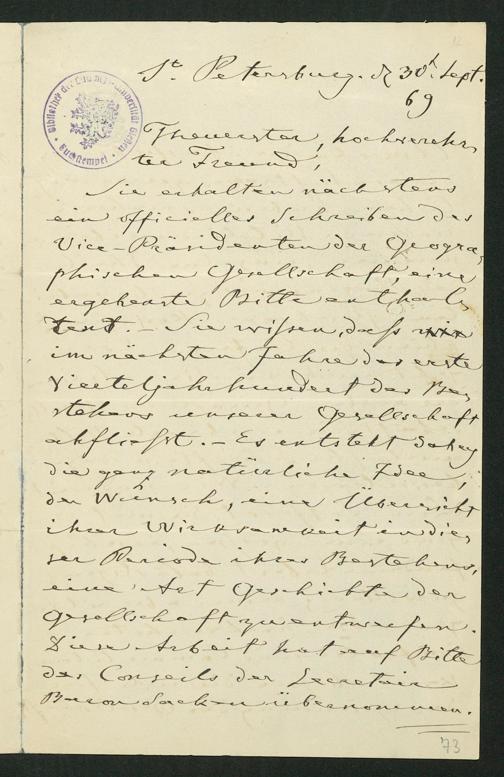 St. Petersburg. d. 30t. Sept.
69
Theuerster, hochverehr-
ter Freund,
Sie erhalten nächstens
ein officielles Schreiben des
Vice-Präsidenten der Geogra-
phischen Gesellschaft, eine
ergebenste Bitte enthal-
tend. – Sie wissen, daß
im nächsten Jahre das erste
Vierteljahrhundert des Be-
stehens unserer Gesellschaft
abfließt. – Es entsteht daher
die ganz natürliche Idee,
der Wunsch, eine Übersicht
ihrer Wirksamkeit in die-
ser Periode ihres Bestehens,
eine Art Geschichte der
Gesellschaft zu entwerfen.
Diese Arbeit hat auf Bitte
des Conseils der Secretair
Baron Sacken übernommen.
73
Bibliothek der Universität Gießen